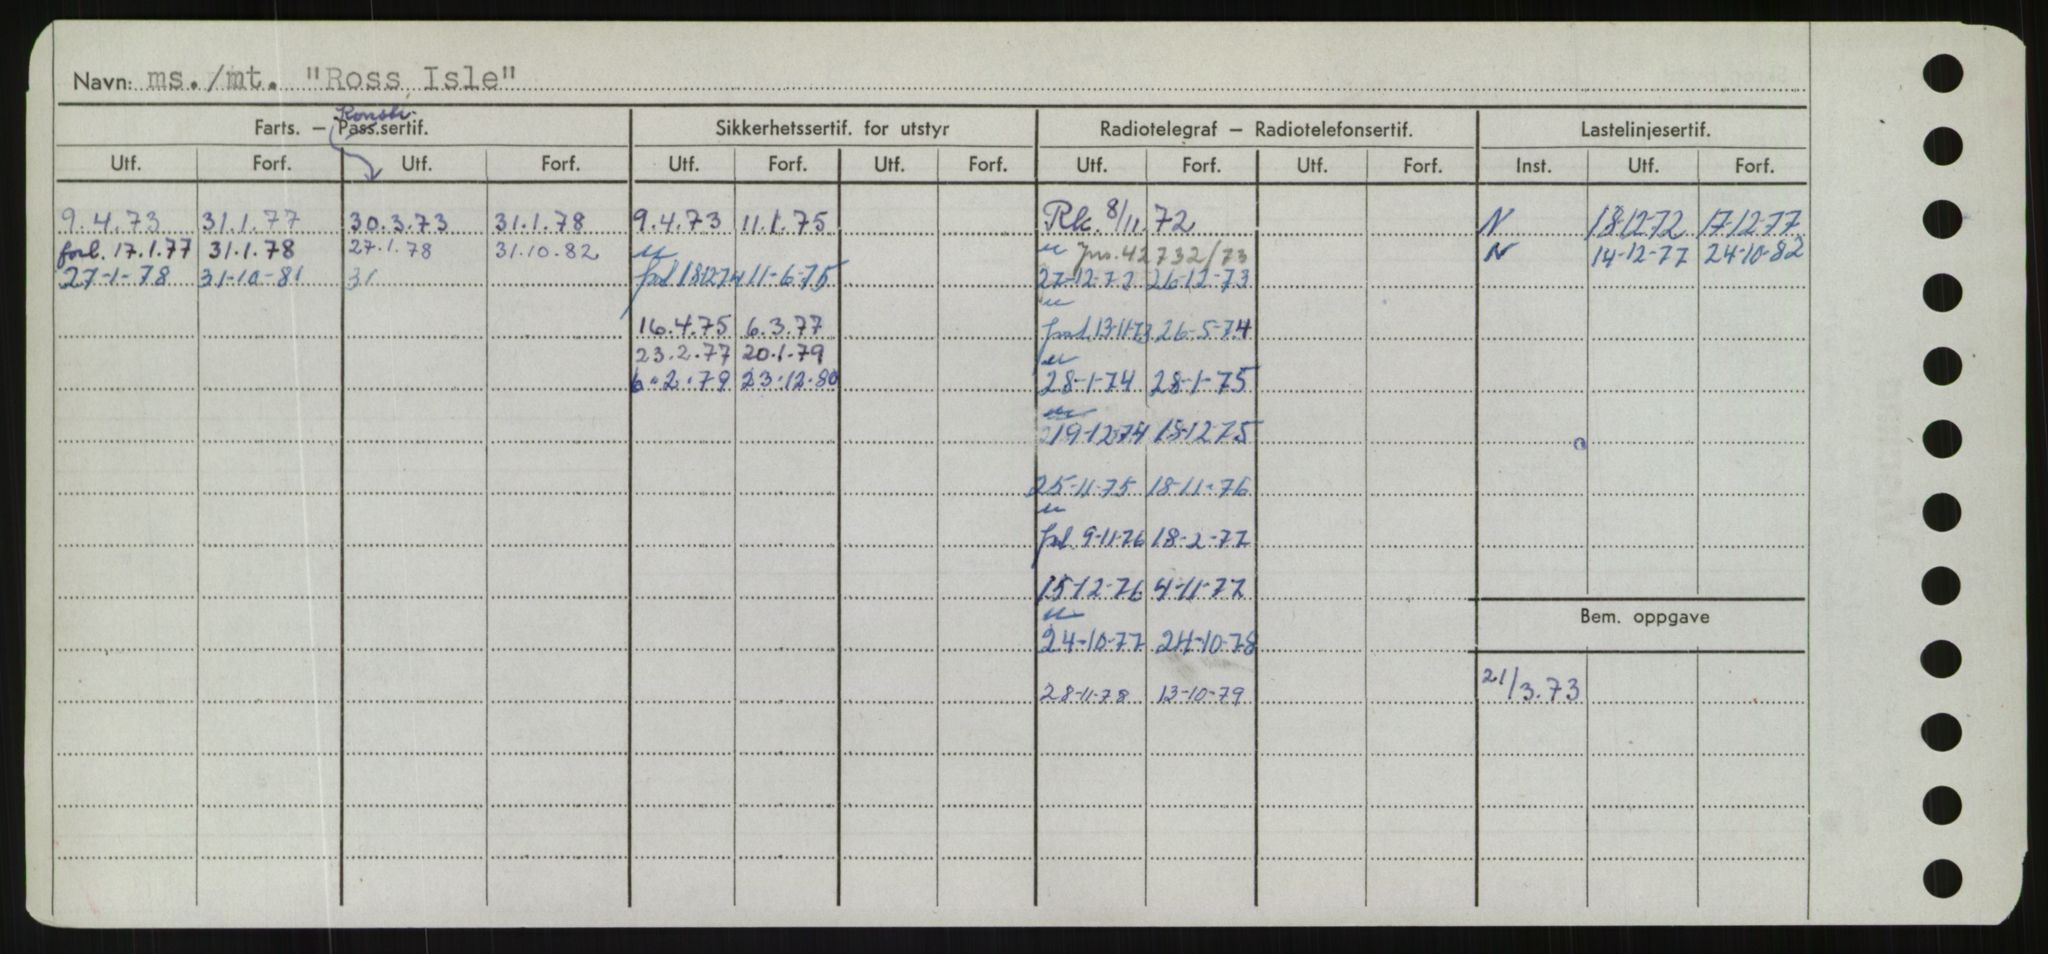 Navn: ms./mt. "Ross Isle"
Konstr.
Farts. – Pass.sertif. Sikkerhetssertif. for utstyr Radiotelegraf – Radiotelefonsertif. Lastelinjesertif.
Utf. Forf. Utf. Forf. Utf. Forf. Utf. Forf. Utf. Forf. Utf. Forf. Inst. Utf. Forf.
9.4.73 31.1.77 30.3.73 31.1.78 9.4.73 11.1.75 Rk. 8/11.72 N 18-12-72 17-12-77
forl. 17.1.77 31.1.78 27.1.78 31.10.82 Jnr. 42732/73 N 14-12-77 24-10-82
27-1-78 31-10-81 31 forl 18-12-74 11-6-75 27-12-72 26-12-73
16.4.75 6.3.77 forl. 13-11-73 26-5-74
23.2.77 20.1.79
6.2.79 23.12.80 28-1-74 28-1-75
19-12-74 18-12-75
25-11-75 18-11-76
forl. 9-11-76 18-2-77
15-12-76 4-11-77
Bem. oppgave
24-10-77 24-10-78
28-11-78 13-10-79 21/3.73